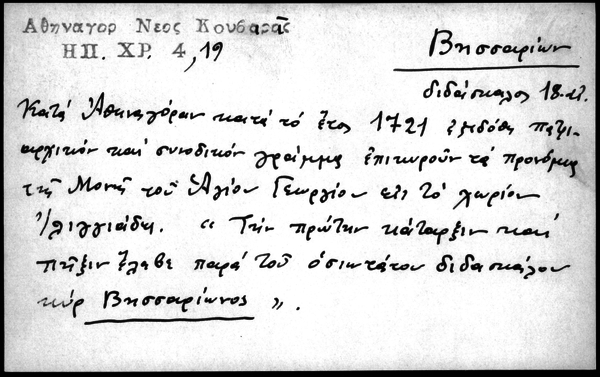 Αθηναγορ Νεος Κουβαρᾶς
ΗΠ. ΧΡ. 4, 19
Βησσαρίων
διδάσκαλος 18 αἰ.
Κατά Ἀθηναγόραν κατά τό ἔτος 1721 ἐξεδόθη πατρι-
αρχικόν καί συνοδικόν γράμμα ἐπικυροῦν τά προνόμια
τῆς Μονῆς τοῦ Ἁγίου Γεωργίου εἰς τό χωρίον
Λιγγιάδες. " Τήν πρώτην κάταρξιν καί
πῆξιν ἔλαβε παρά τοῦ ὁσιωτάτου διδασκάλου
κύρ Βησσαρίωνος ".